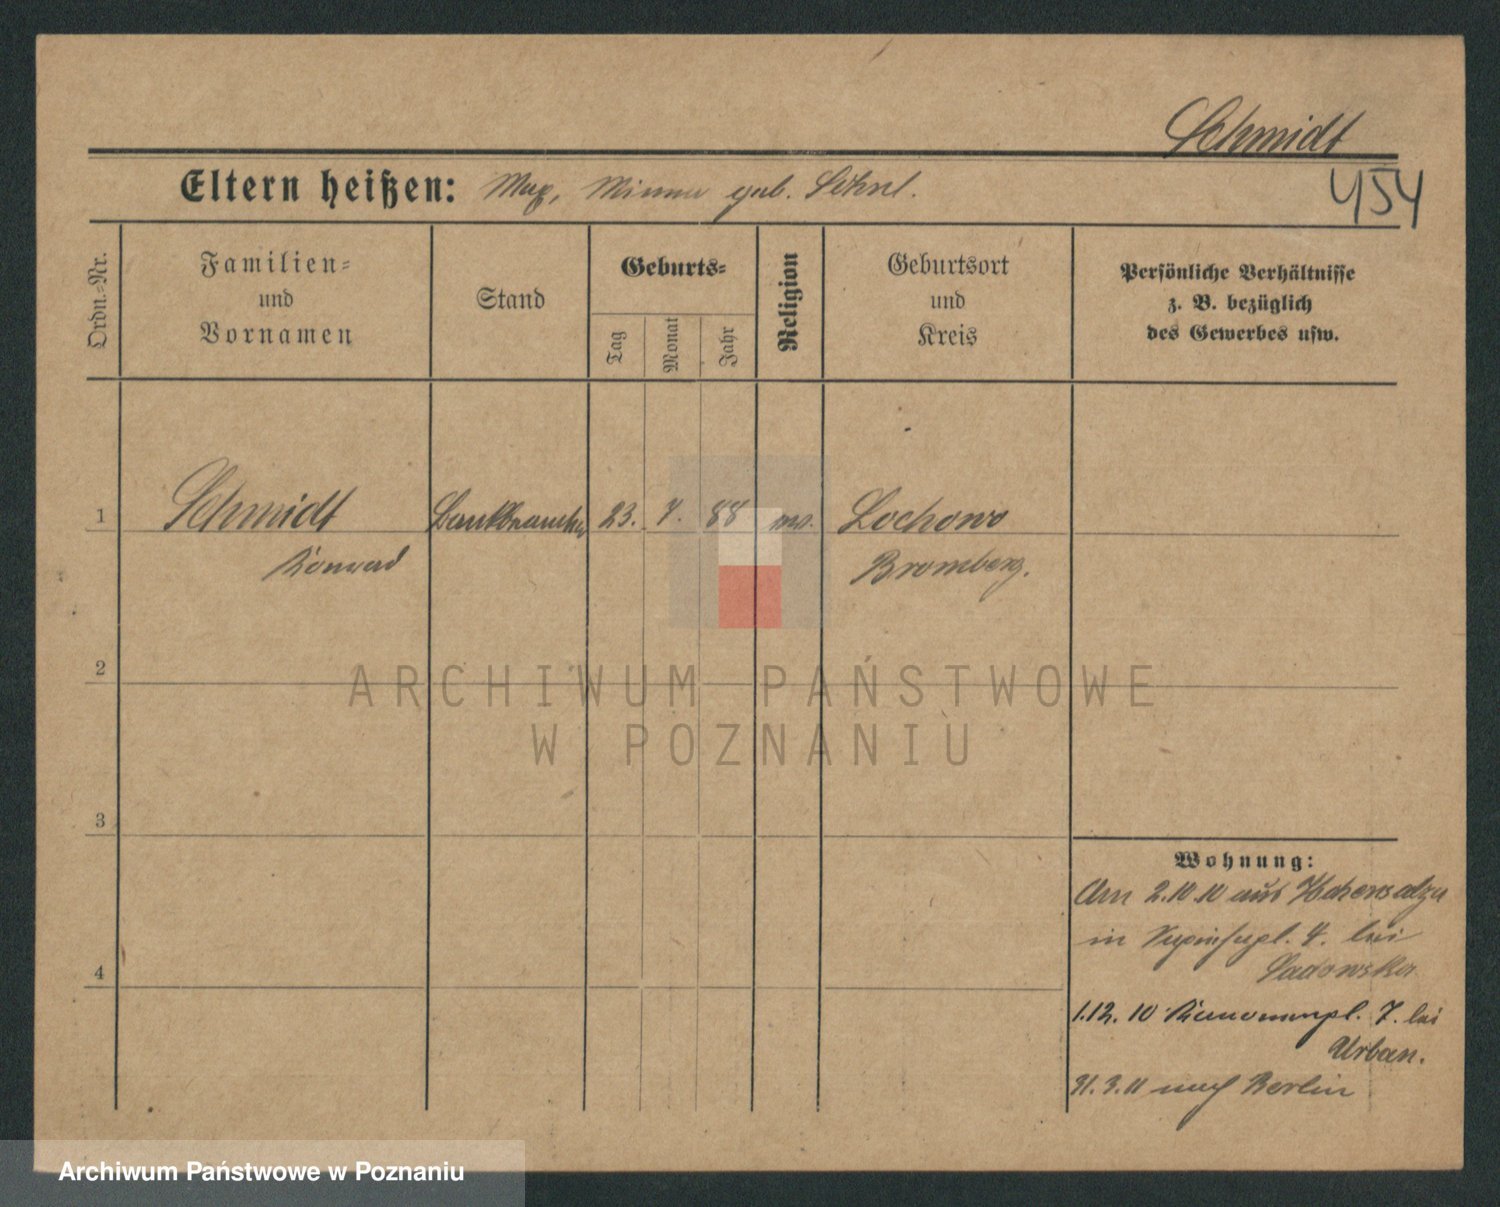 Schmidt
Eltern heißen: Max, Minna geb.
454
Ordn.=Nr.
Familien=
und
Vornamen
Stand
Geburts=
Tag
Monat
Jahr
Religion
Geburtsort
und
Kreis
Persönliche Verhältnisse
z. B. bezüglich
des Gewerbes usw.
1
Schmidt
Bankbeamter
23.
88
Lochowo
Konrad
Bromberg.
2
ARCHIWUM PAŃSTWOWE
W POZNANIU
3
Wohnung:
Am 2.10.10 aus Hohensalza
in 4. bei
Sadowska
4
1.12.10 7. bei
Urban.
31.3.11 nach Berlin
Archiwum Państwowe w Poznaniu